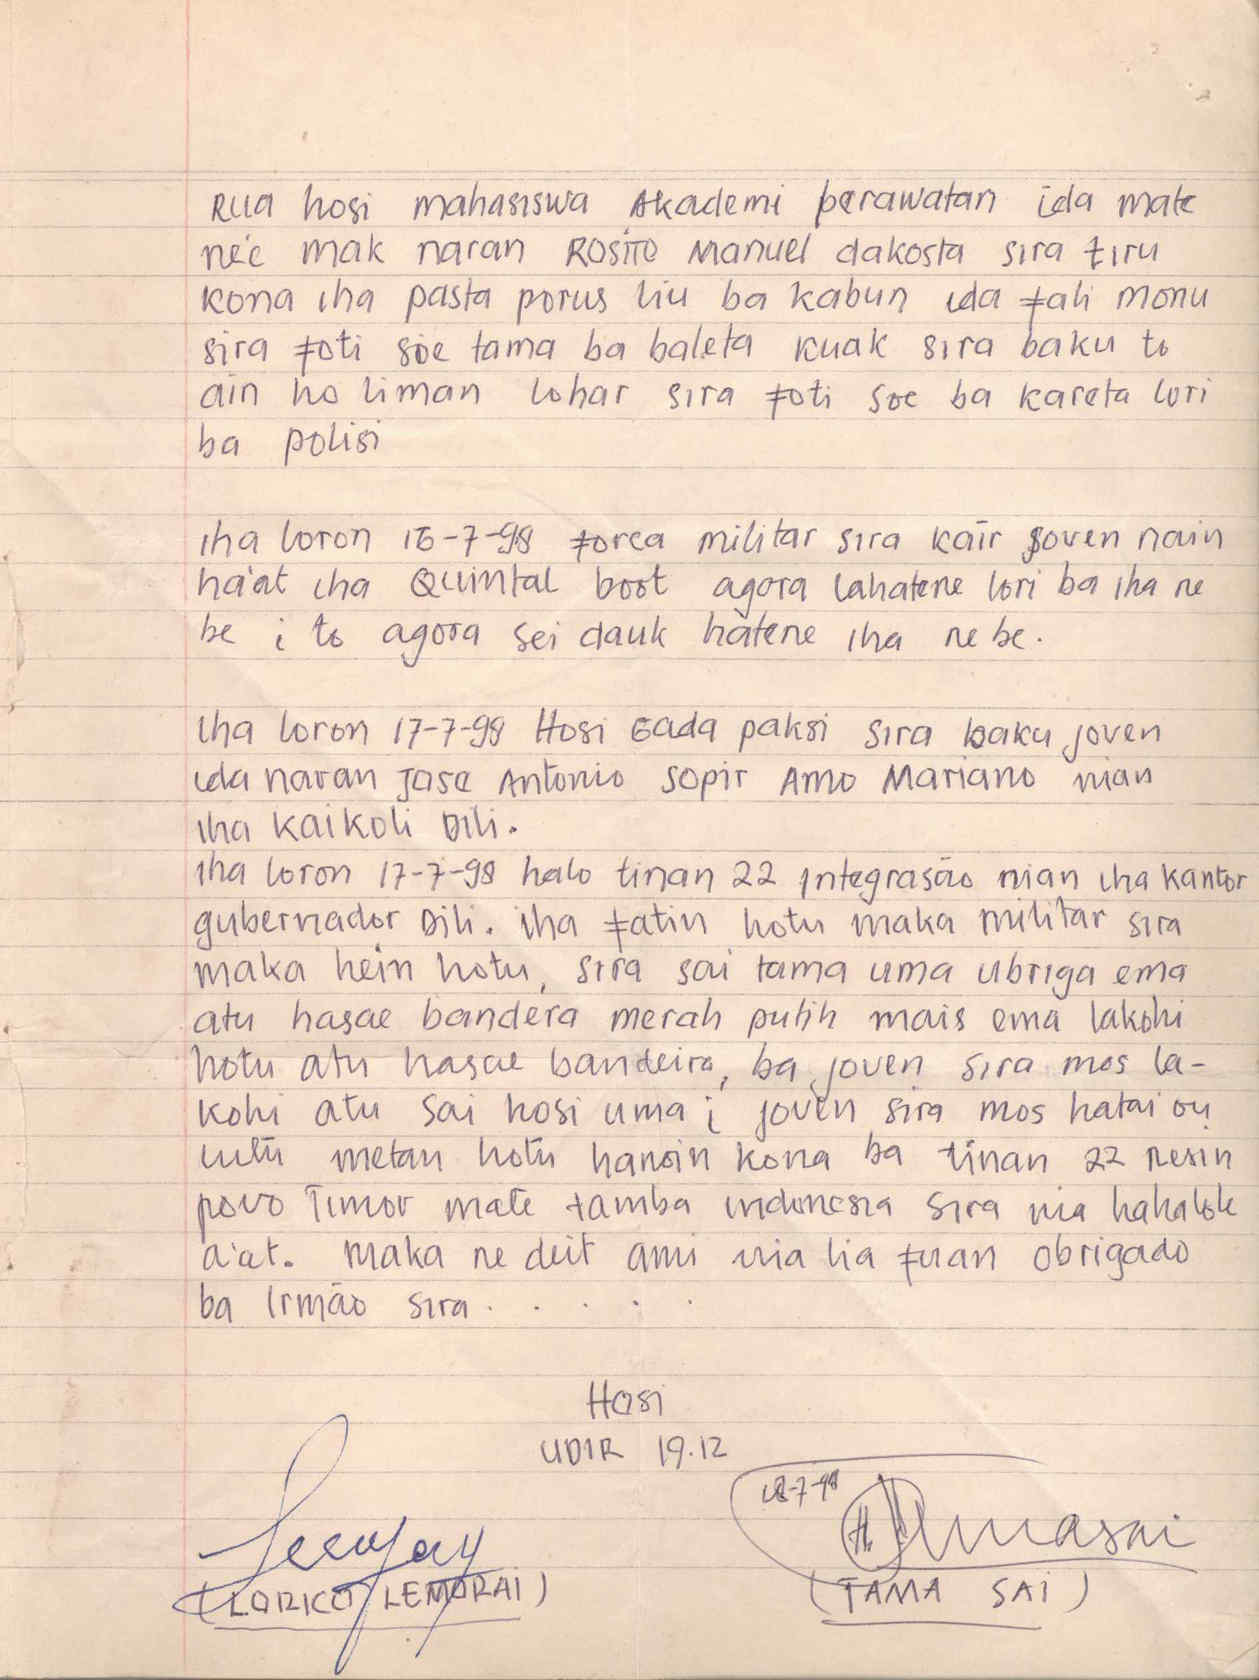 Rua hosi mahasiswa Akademi perawatan ida mate
ne'e mak naran ROSITO Manuel dakosta sira tiru
kona iha pasta porus liu ba kabun ida fali monu
sira foti soe tama ba baleta kuak sira baku to
ain ho liman lohar sira foti soe ba kareta lori
ba polisi
iha loron 16-7-98 forca militar sira kair joven nain
ha'at iha Quintal boot agora lahatene lori ba iha ne
be i to agora sei dauk hatene iha nebe.
iha loron 17-7-98 Hosi Gada paksi sira baku joven
ida naran Jose Antonio sopir Amo Mariano nian
iha Kaikoli Dili.
iha loron 17-7-98 halo tinan 22 integrasão nian iha kantor
gubernador Dili. iha fatin hotu maka militar sira
maka hein hotu, sira sai tama uma ubriga ema
atu hasae bandera merah putih mais ema lakohi
hotu atu hasae bandeira, ba joven sira mos la-
kohi atu sai hosi uma i joven sira mos hatai
lutu metan hotu hanoin kona ba tinan 22 resin
povo Timor mate tamba indonesia sira nia hahalok
a'at. maka ne deit ami nia lia fuan obrigado
ba Irmão sira. . . . .
Hosi
UDIR 19.12
18-7-98
Lemasai
(LORICO LEMORAI)
(TAMA SAI)